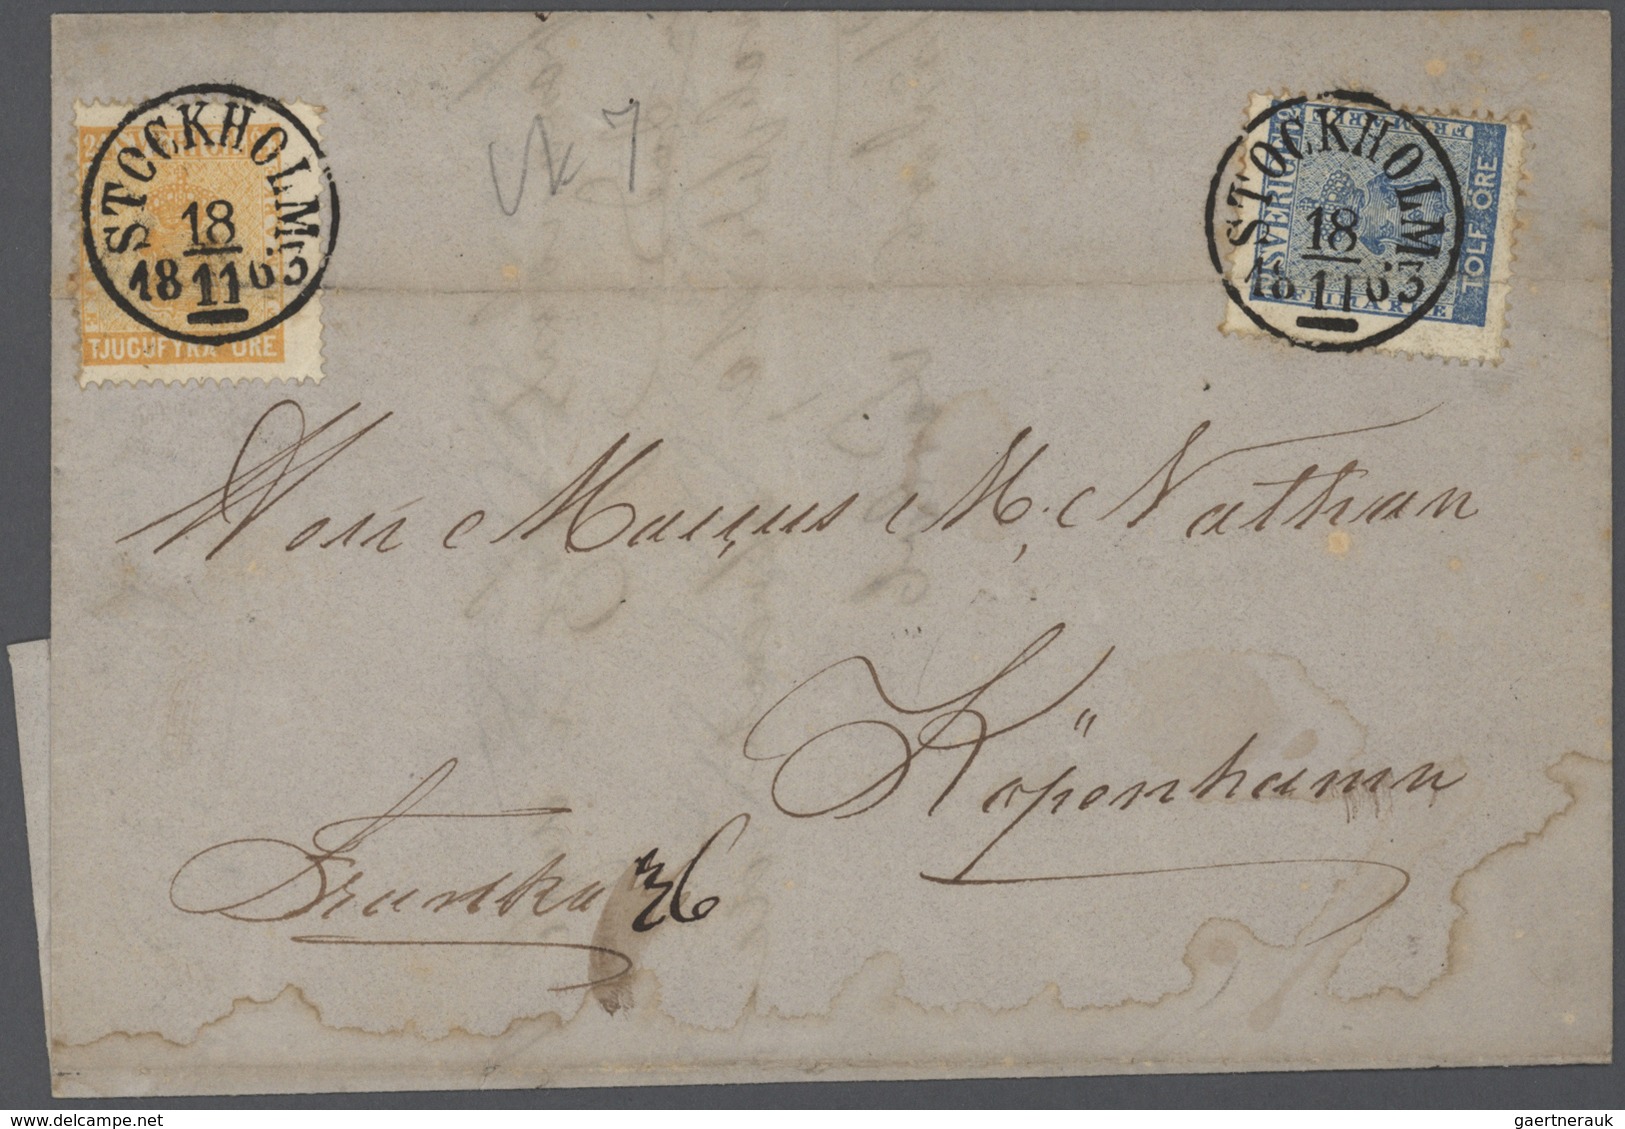 STOCKHOLM
18
18 11 63
TJUGUFYRA ÖRE
STOCKHOLM
18
18 11 63
SVERIGE
FRIMÄRKE
TOLF ÖRE
FRIMÄRKE
M. Nathan
Köpenhamn
Franko 36
gaertnerauk